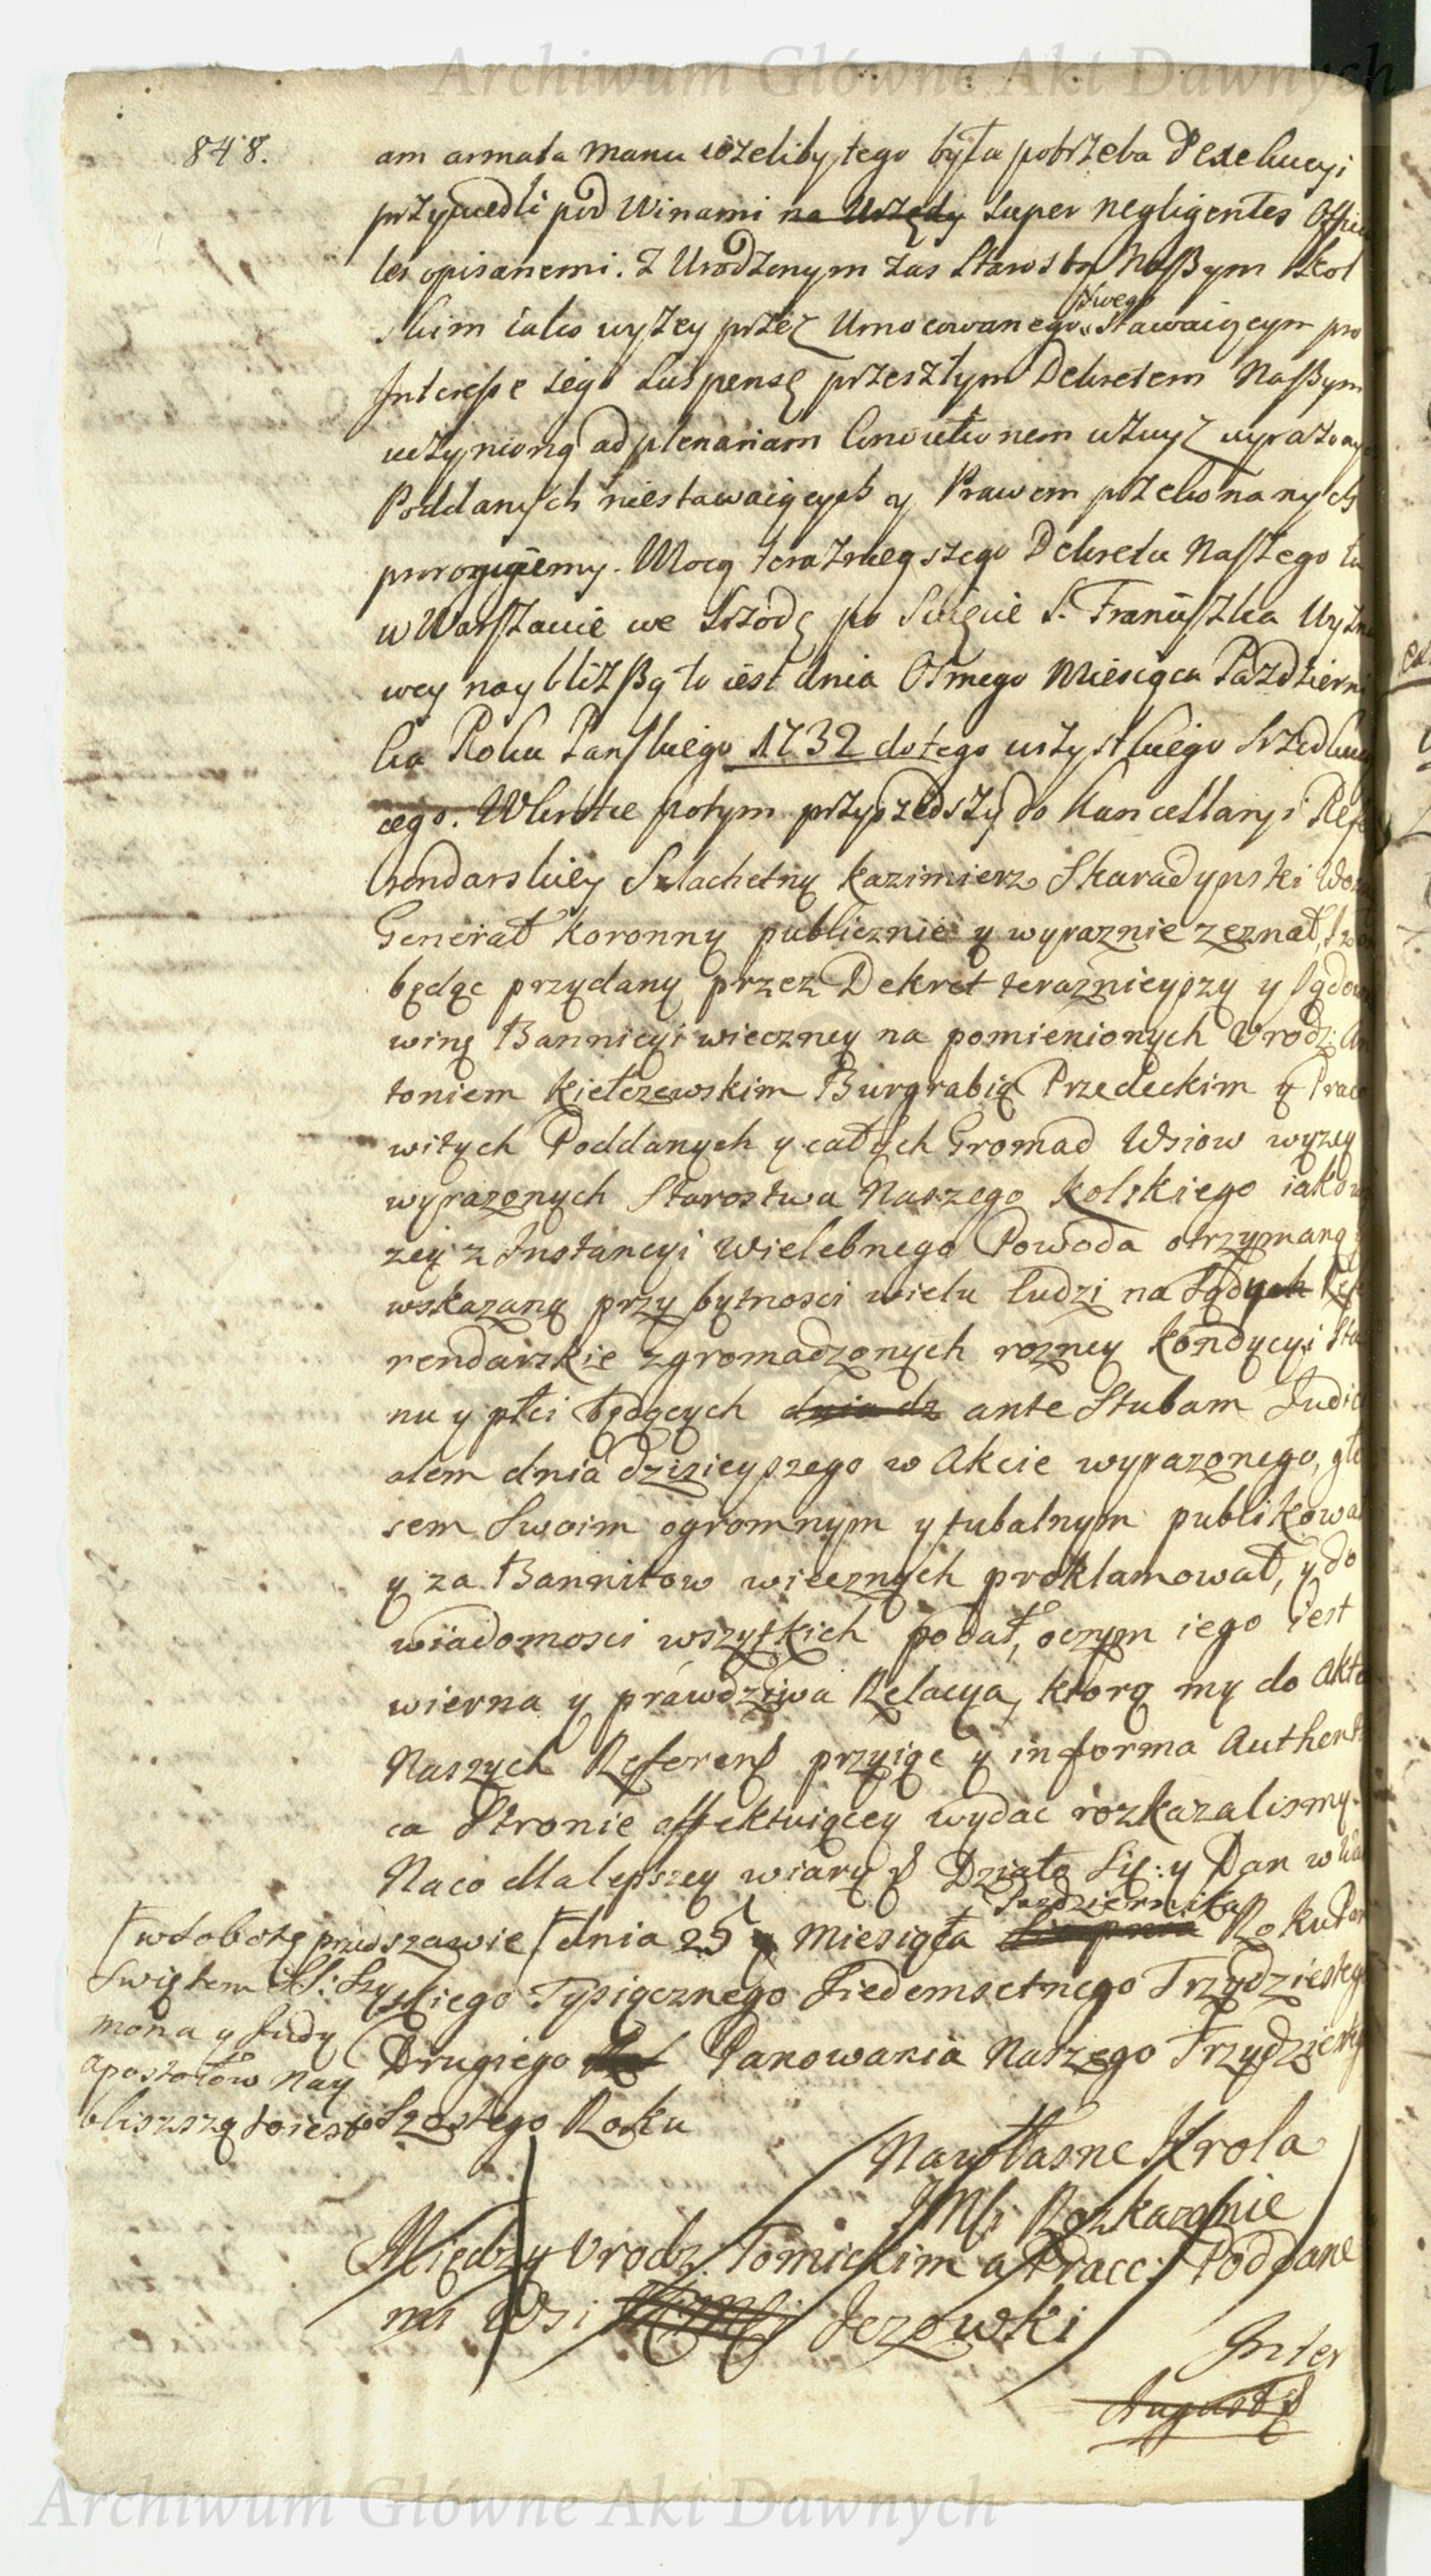 Archiwum Główne Akt Dawnych
848.
am armata manu ieżeliby tego była potrzeba Dexekucyi
przywiedli pod Winami na Urzędy Super negligentes Offici
les opisanemi. Z Urodzonym zas Starostą Naßym Kol
skim iako wyzey przez Umocowanego swego Stawaiącym pro
Interesse iego Suspensę przeszłym Dekretem Naßym
uczynioną ad plenariam Convictionem wyrazonyc
Poddanych niestawaiących y Prawem przekonanych
prorogujemy. Mocą teraznieyszego Dekretu Naszego tu
w Warszawie we Srzodę po Swięcie S. Franciszka Wyzna
wcy naybliżßą to iest dnia Osmego Miesiąca Pazdzierni
ka Roku Panskiego 1732 do tego wszystkiego Srzedkuią
cego. Wkrotce potym przyszedszy do Kancellaryi Refe
rendarskiey Szlachetny Kazimierz Skaradynski Wozn
Generał Koronny publicznie y wyraznie zeznał, Iz on
będąc przydany przez Dekret teraznieyszy y Sądow
winę Bannicyi wieczney na pomienionych Urodz: An
toniem Kiełczewskim Burgrabią Przedeckim y Prac
witych Poddanych y całych Gromad Wsiow wyzey
wyrazonych Starostwa Naszego Kolskiego iako w
zey z Instancyi Wielebnego Powoda otrzymaną y
wskazaną przy bytnosci wielu ludzi na Sądych Refe
rendarskie zgromadzonych rozney Kondycyi Sta
nu y płci będących dnia dz ante Stubam Judici
alem dnia dzisieyszego w Akcie wyrazonego, gło
sem Swoim ogromnym y tubalnym publikował
y za Bannitow wiecznych proklamował, y do
wiadomosci wszytkich podał, oczym iego iest
wierna y prawdziwa Relacya, ktorą my do Akto
Naszych Referend przyiąc y in forma Authenti
ca Stronie affektuiącey wydac rozkazalismy.
Naco dla lepszey wiary Działo Się: y Dan w War
Pazdziernika
szawie dnia 25 Miesiąca Sierpnia Roku Pan
skiego Tysiącznego Siedemsetnego Trzydziestego
Drugiego Panowania Naszego Trzydziesteg
Szostego Roku
w Sobotę przed
Swiętem SS: Szy
mona y Judy
Apostołow nay
bliszszą to iest
Na własne Krola
JMści Rozkazanie
Między Urodz: Tomickim a Pracc: Poddane
mi Wsi Jezowki
Inter
August
Archiwum Główne Akt Dawnych